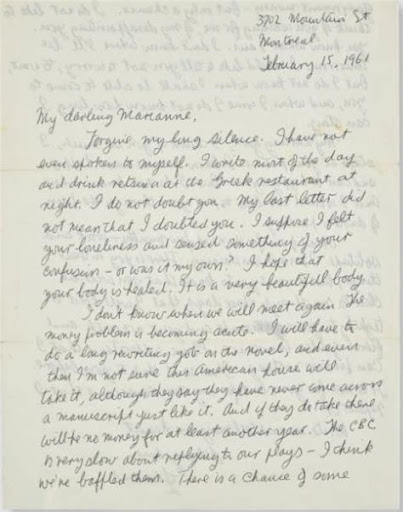 3702 Mountain St
Montreal
February 15, 1961
My darling Marianne,
Forgive my long silence. I have not
even spoken to myself. I write most of the day
and drink retsina at the Greek restaurant at
night. I do not doubt you. My last letter did
not mean that I doubted you. I suppose I felt
your loneliness and sensed something of your
confusion – or was it my own? I hope that
your body is healed. It is a very beautiful body.
I don't know when we will meet again. The
money problem is becoming acute. I will have to
do a long rewriting job on the novel, and even
then I'm not sure this American house will
take it, although they say they have never come across
a manuscript just like it. And if they do take there
will be no money for at least another year. The CBC
is very slow about replying to our plays – I think
we've baffled them. There is a chance of some